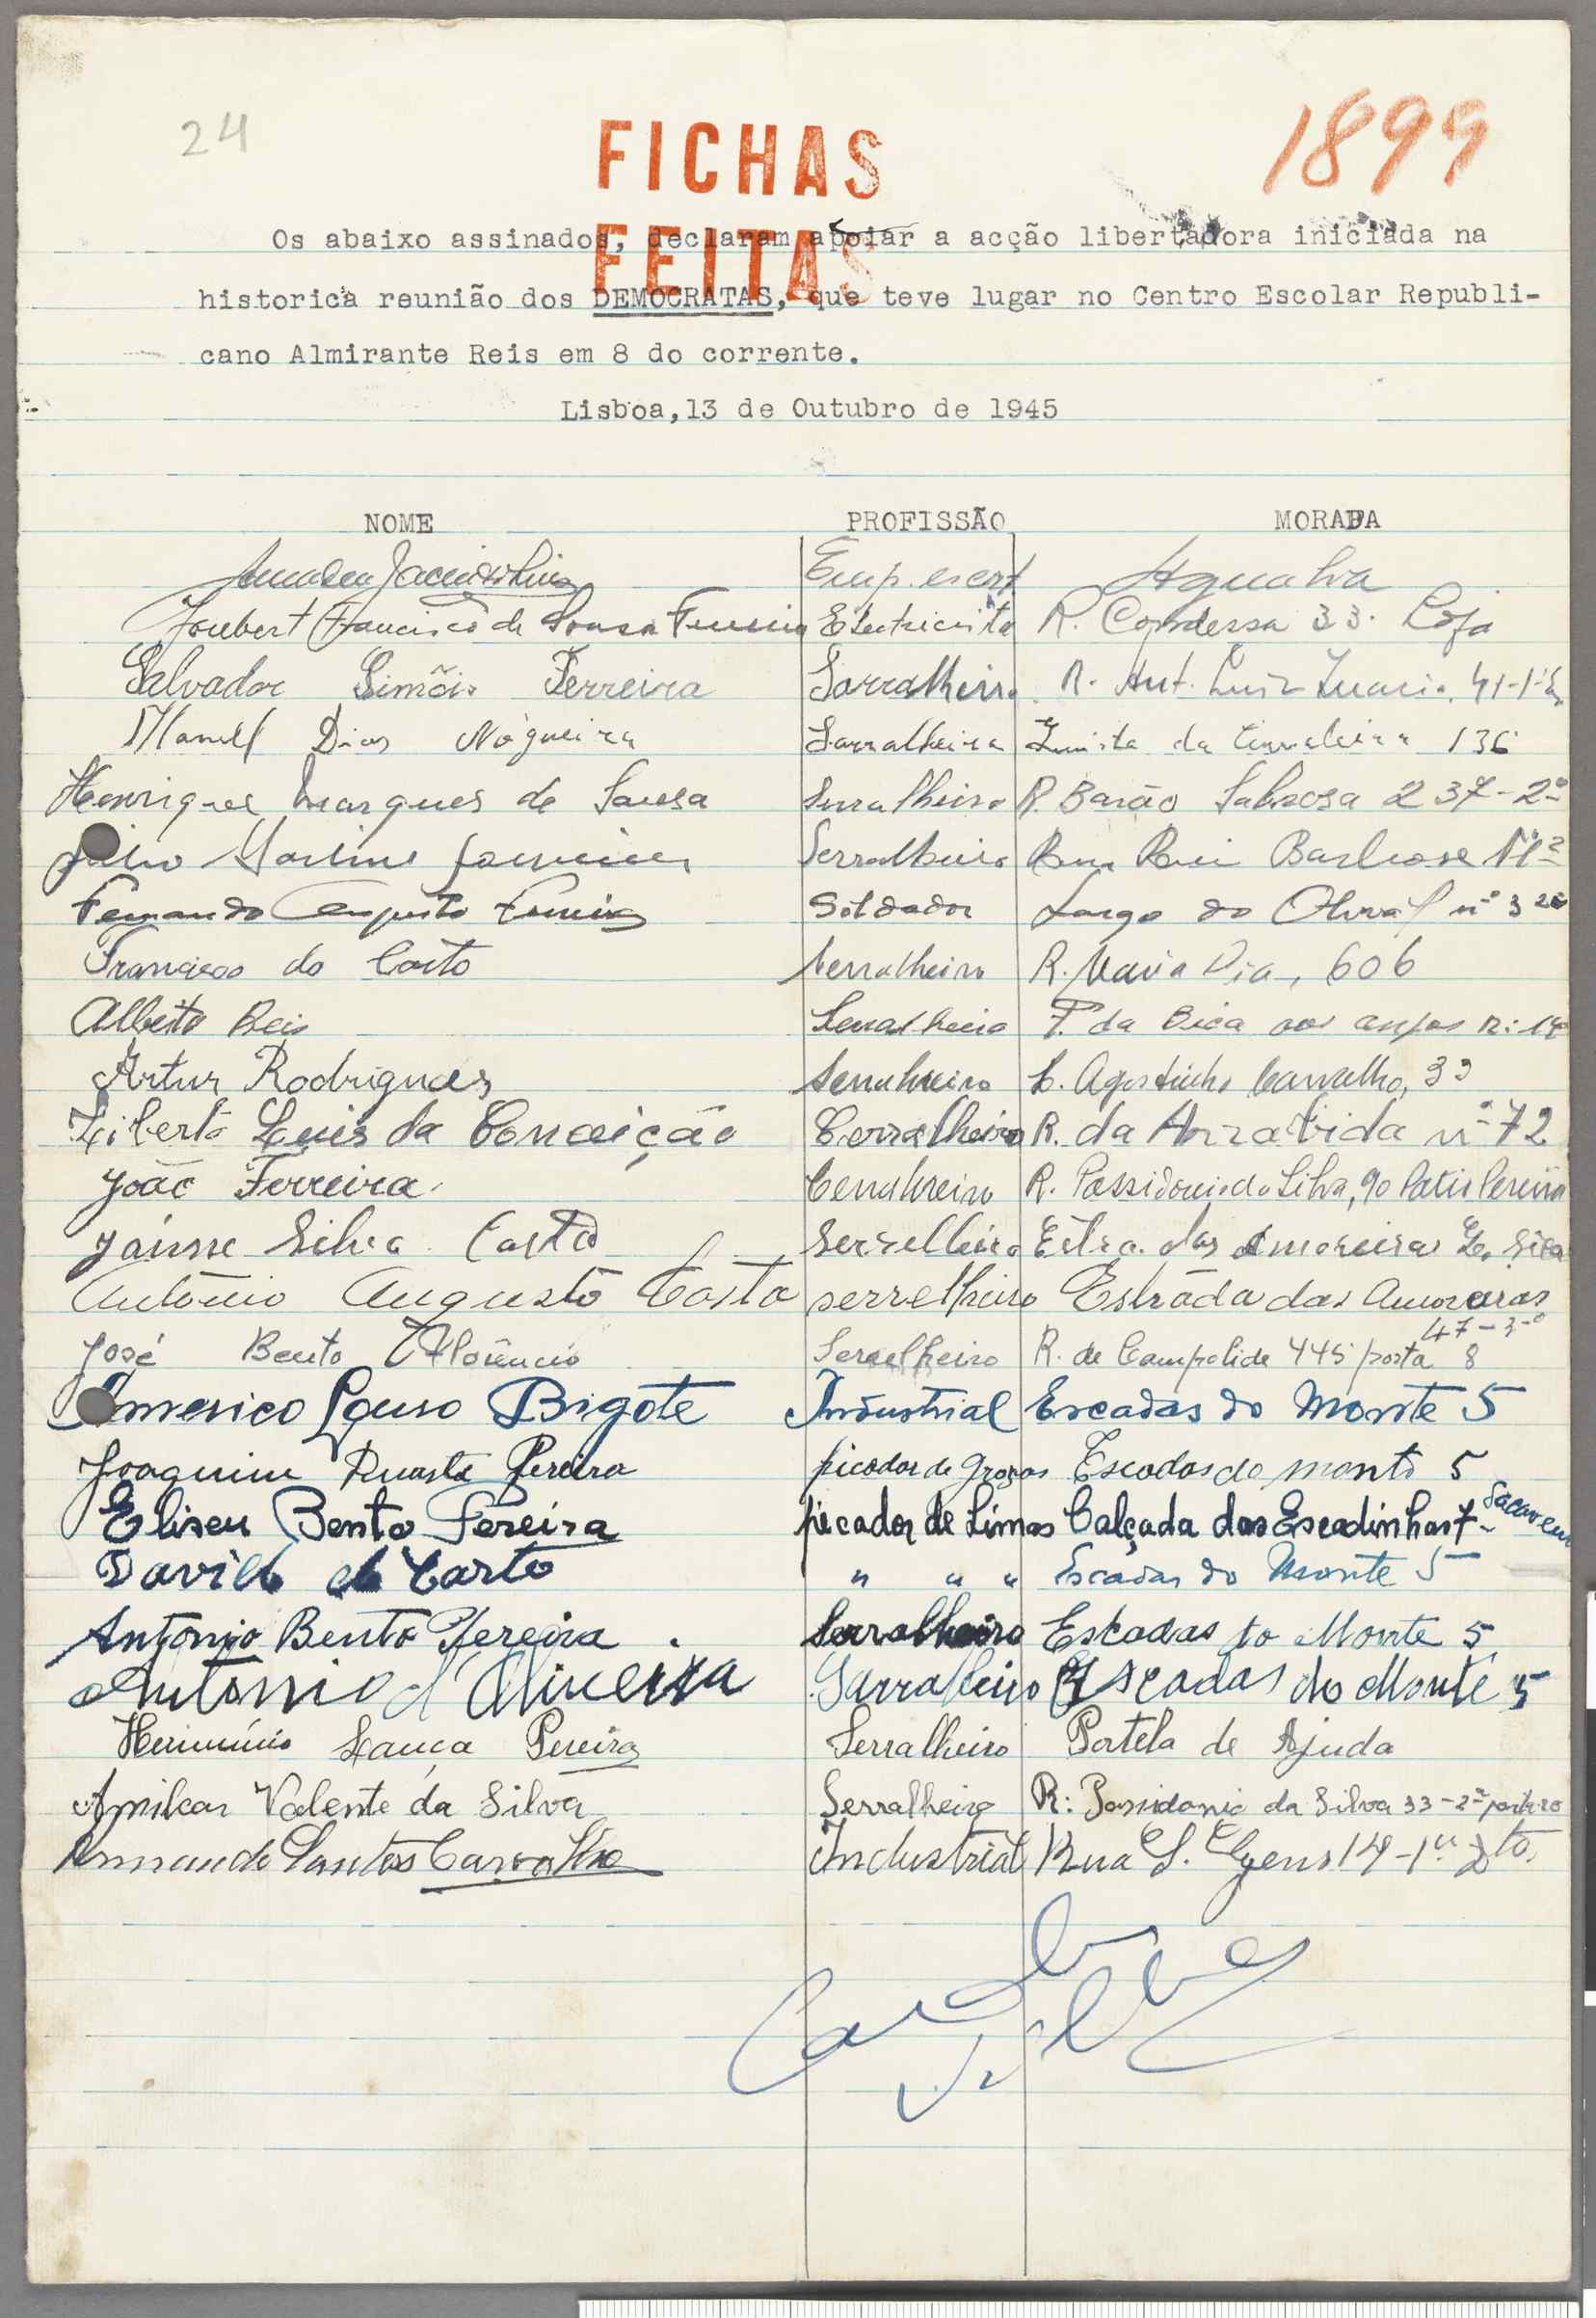 24
1899
FICHAS
FEITAS
Os abaixo assinados, declaram apoiar a acção libertadora iniciada na
historica reunião dos DEMOCRATAS, que teve lugar no Centro Escolar Republi-
cano Almirante Reis em 8 do corrente.
Lisboa,13 de Outubro de 1945
NOME PROFISSÃO MORADA
Emp. escrt Agualva
Joubert Francisco de Sousa Ferreira Electricista R. Condessa 33. Loja
Salvador Simõis Ferreira Sarralheiro R. Ant. Luiz
Manuel Dias Nogueira Sarralheira da 136
Henrique Marques de Sousa Serralheiro R. Barão Sabrosa 237-2º
Julio Martins Serralheiro Rua Rui Barbosa
Fernando Augusto Soldador Largo do Olival nº 3
Francisco do Couto Serralheiro R. Maria Pia, 606
Alberto Reis Serralheiro T. da Bica aos anjos n:
Artur Rodrigues Serralheiro L. Agostinho Carvalho, 33
Liberto Luis da Conceição Cerralheiro R. da Arrabida nº 72
João Ferreira Cerralheiro R. Possidonio da Silva, 90 Patio Pereira
Jaime Silva Costa Serrelheiro Estra. das Amoreiras
António Augusto Costa serrelheiro Estrada das Amoreiras
47-3-º
José Bento Florêncio Serrelheiro R. de Campolide 445 porta 8
Americo Louso Bigote Industrial Escadas do Monte 5
Joaquim Duarte Pereira picador de grozas Escadas do monte 5
Eliseu Bento Pereira picador de Limas Calçada das Escadinhas 7- Sacavem
David do Carto " " " Escadas do Monte 5
Antonio Bento Pereira. Serralheiro Escadas do Monte 5
António d'Oliveira Sarralheiro Escadas do Monte 5
Herminio Lança Pereira Serralheiro Portela de Ajuda
Amilcar Valente da Silva Serralheiro R: Possidonio da Silva 33-2º
Armando Santos Carvalho Industrial Rua S. Gens 14-1º Dto.